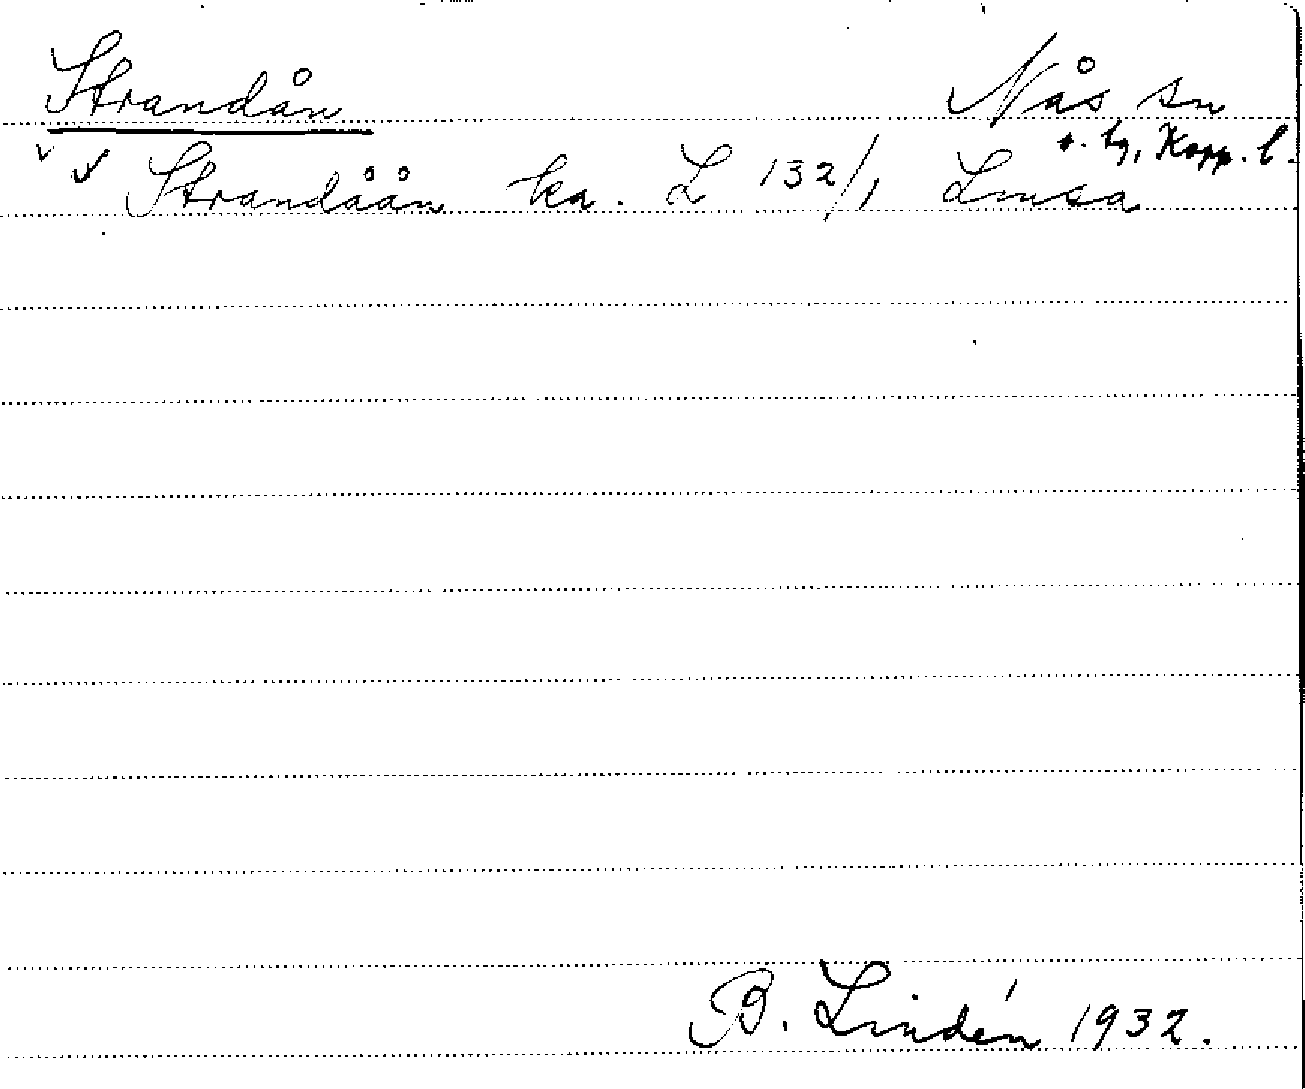 Strandån Nås sn
o. tg, Kopp. l.
Strandåån ka. L 132/1 Lmsa
B. Lindén 1932.